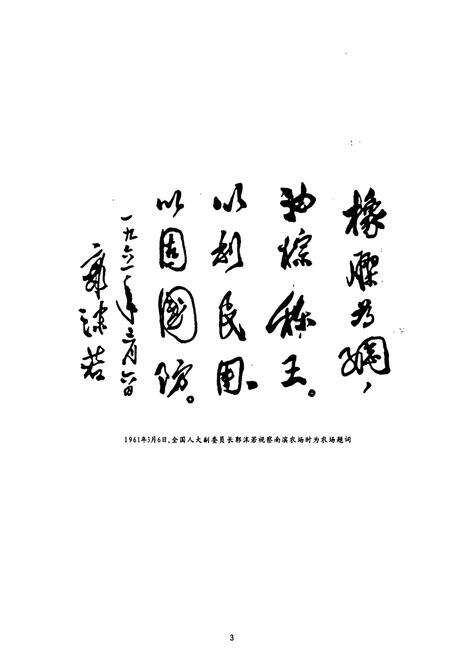 橡胶为纲，
油棕称王。
以利民用，
以固国防。
一九六一年三月六日
郭沫若
1961年3月6日,全国人大副委员长郭沫若视察南滨农场时为农场题词
3